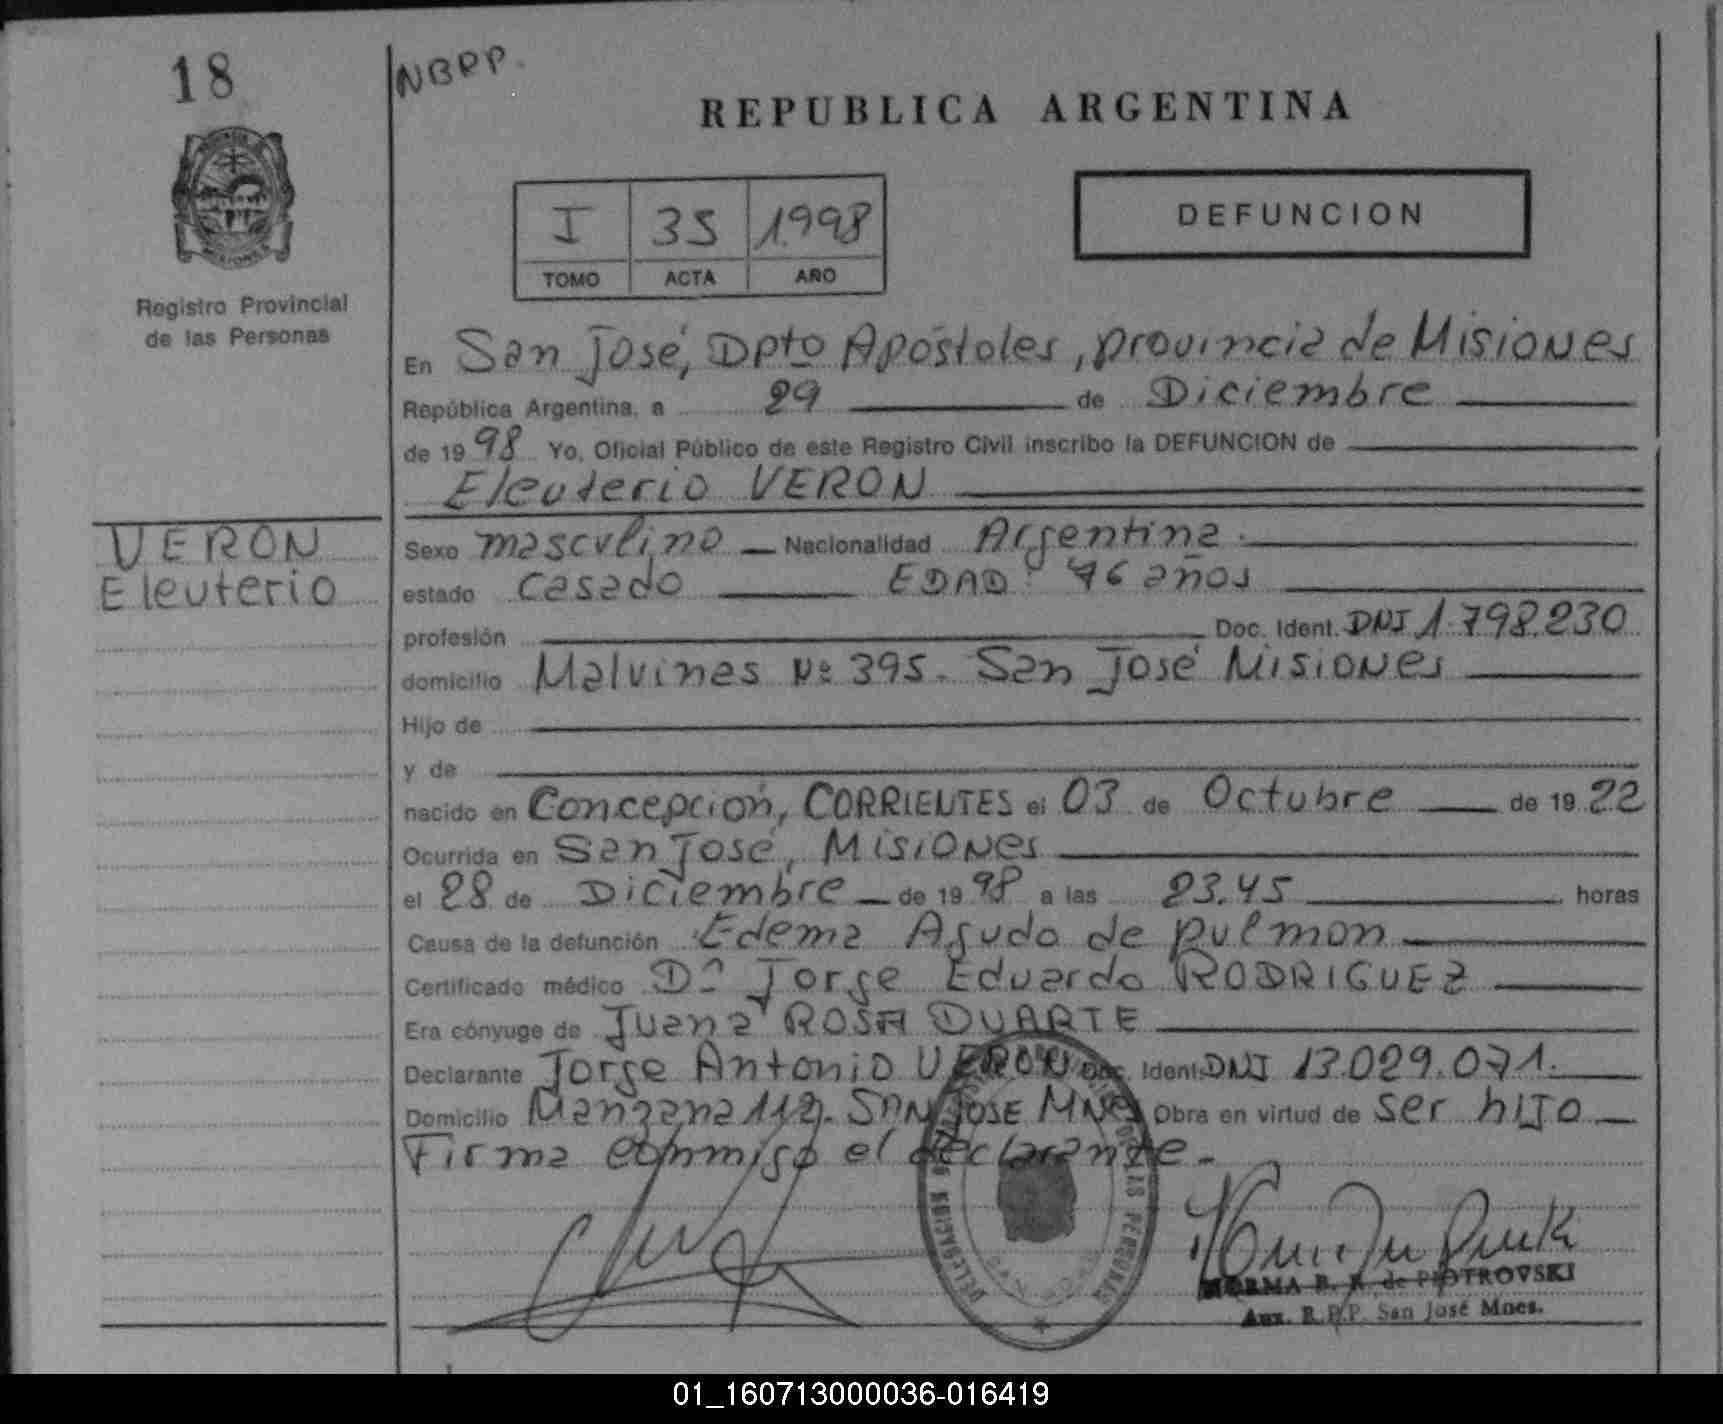 18
NBRP.
REPUBLICA ARGENTINA
I 35 1998
TOMO ACTA AÑO
DEFUNCION
Registro Provincial
de las Personas
En San José, Dpto Apóstoles, provincia de Misiones
República Argentina, a 29 de Diciembre
de 1998 Yo, Oficial Público de este Registro Civil inscribo la DEFUNCION de
Eleuterio VERON
VERON
Eleuterio
Sexo masculino Nacionalidad Argentina.
estado casado EDAD: 76 años
profesión Doc. Ident. DNI 1.798.230
domicilio Malvinas Nº 395. San José Misiones
Hijo de
y de
nacido en Concepción, CORRIENTES el 03 de Octubre de 1922
Ocurrida en San José, Misiones
el 28 de Diciembre de 1998 a las 23,45 horas
Causa de la defunción Edema Agudo de pulmon
Certificado médico Dr Jorge Eduardo RODRIGUEZ
Era cónyuge de Juana ROSA DUARTE
Declarante Jorge Antonio VERON Doc. Ident. DNI 13.029.071.
Domicilio Manzana 112. SAN JOSE MNES Obra en virtud de ser hijo
Firma conmigo el declarante.
NORMA B. de PIOTROVSKI
Aux. R.P.P. San José Mnes.
01_160713000036-016419